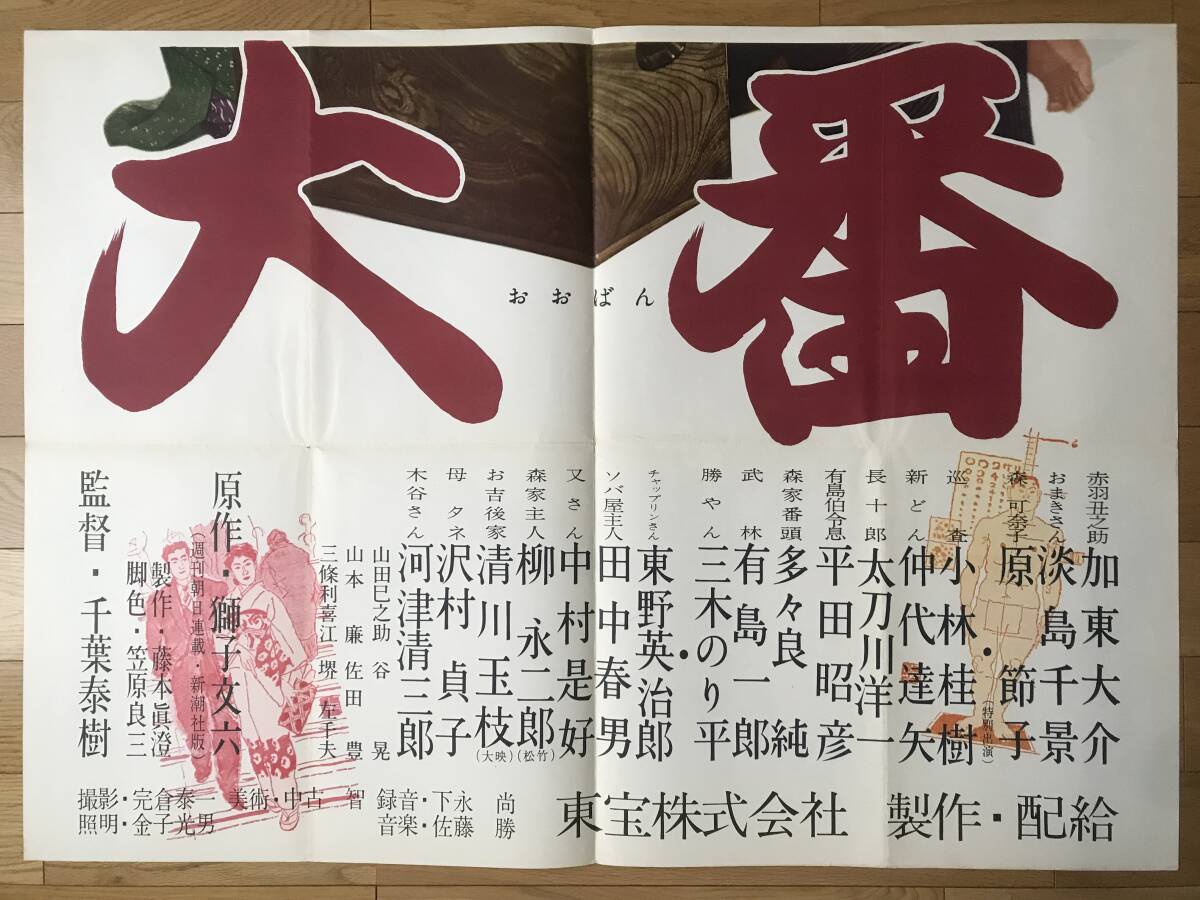 大番
おおばん
赤羽丑之助 加東大介
おまきさん 淡島千景
森可奈子 原・節子(特別出演)
巡査 小林桂樹
新どん 仲代達矢
長十郎 太刀川洋一
有島伯令息 平田昭彦
森家番頭 多々良純
武林 有島一郎
勝やん 三木のり平
チャップリンさん 東野英治郎
ソバ屋主人 田中春男
又さん 中村是好
森家主人 柳永二郎(松竹)
お吉後家 清川玉枝(大映)
母タネ 沢村貞子
木谷さん 河津清三郎
山田巳之助 谷晃
山本廉 佐田豊
三條利喜江 堺左千夫
原作・獅子文六
(週刊朝日連載・新潮社版)
製作・藤本眞澄
脚色・笠原良三
監督・千葉泰樹
撮影・完倉泰一 美術・中古智 録音・下永尚
照明・金子光男 音楽・佐藤勝
東宝株式会社 製作・配給